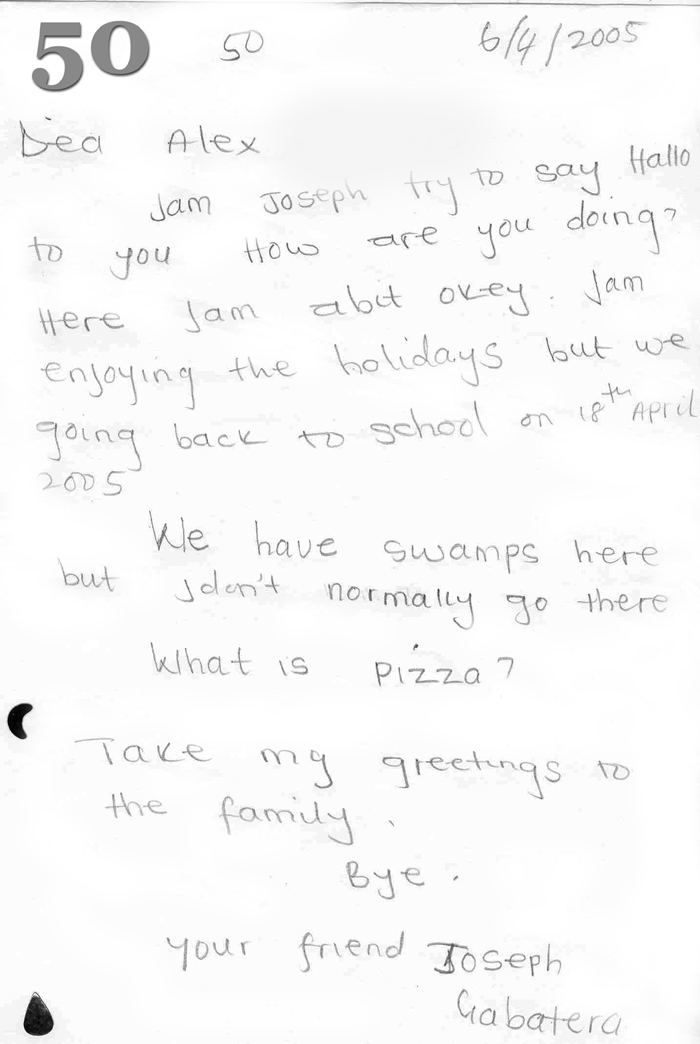 50 50 6/4/2005
Dea Alex
Jam Joseph try to say Hallo
to you How are you doing?
Here Jam abit okey. Jam
enjoying the holidays but we
going back to school on 18th April
2005
We have swamps here
but Jdon't normally go there
What is pizza?
Take my greetings to
the family.
Bye.
your friend Joseph
Gabatera